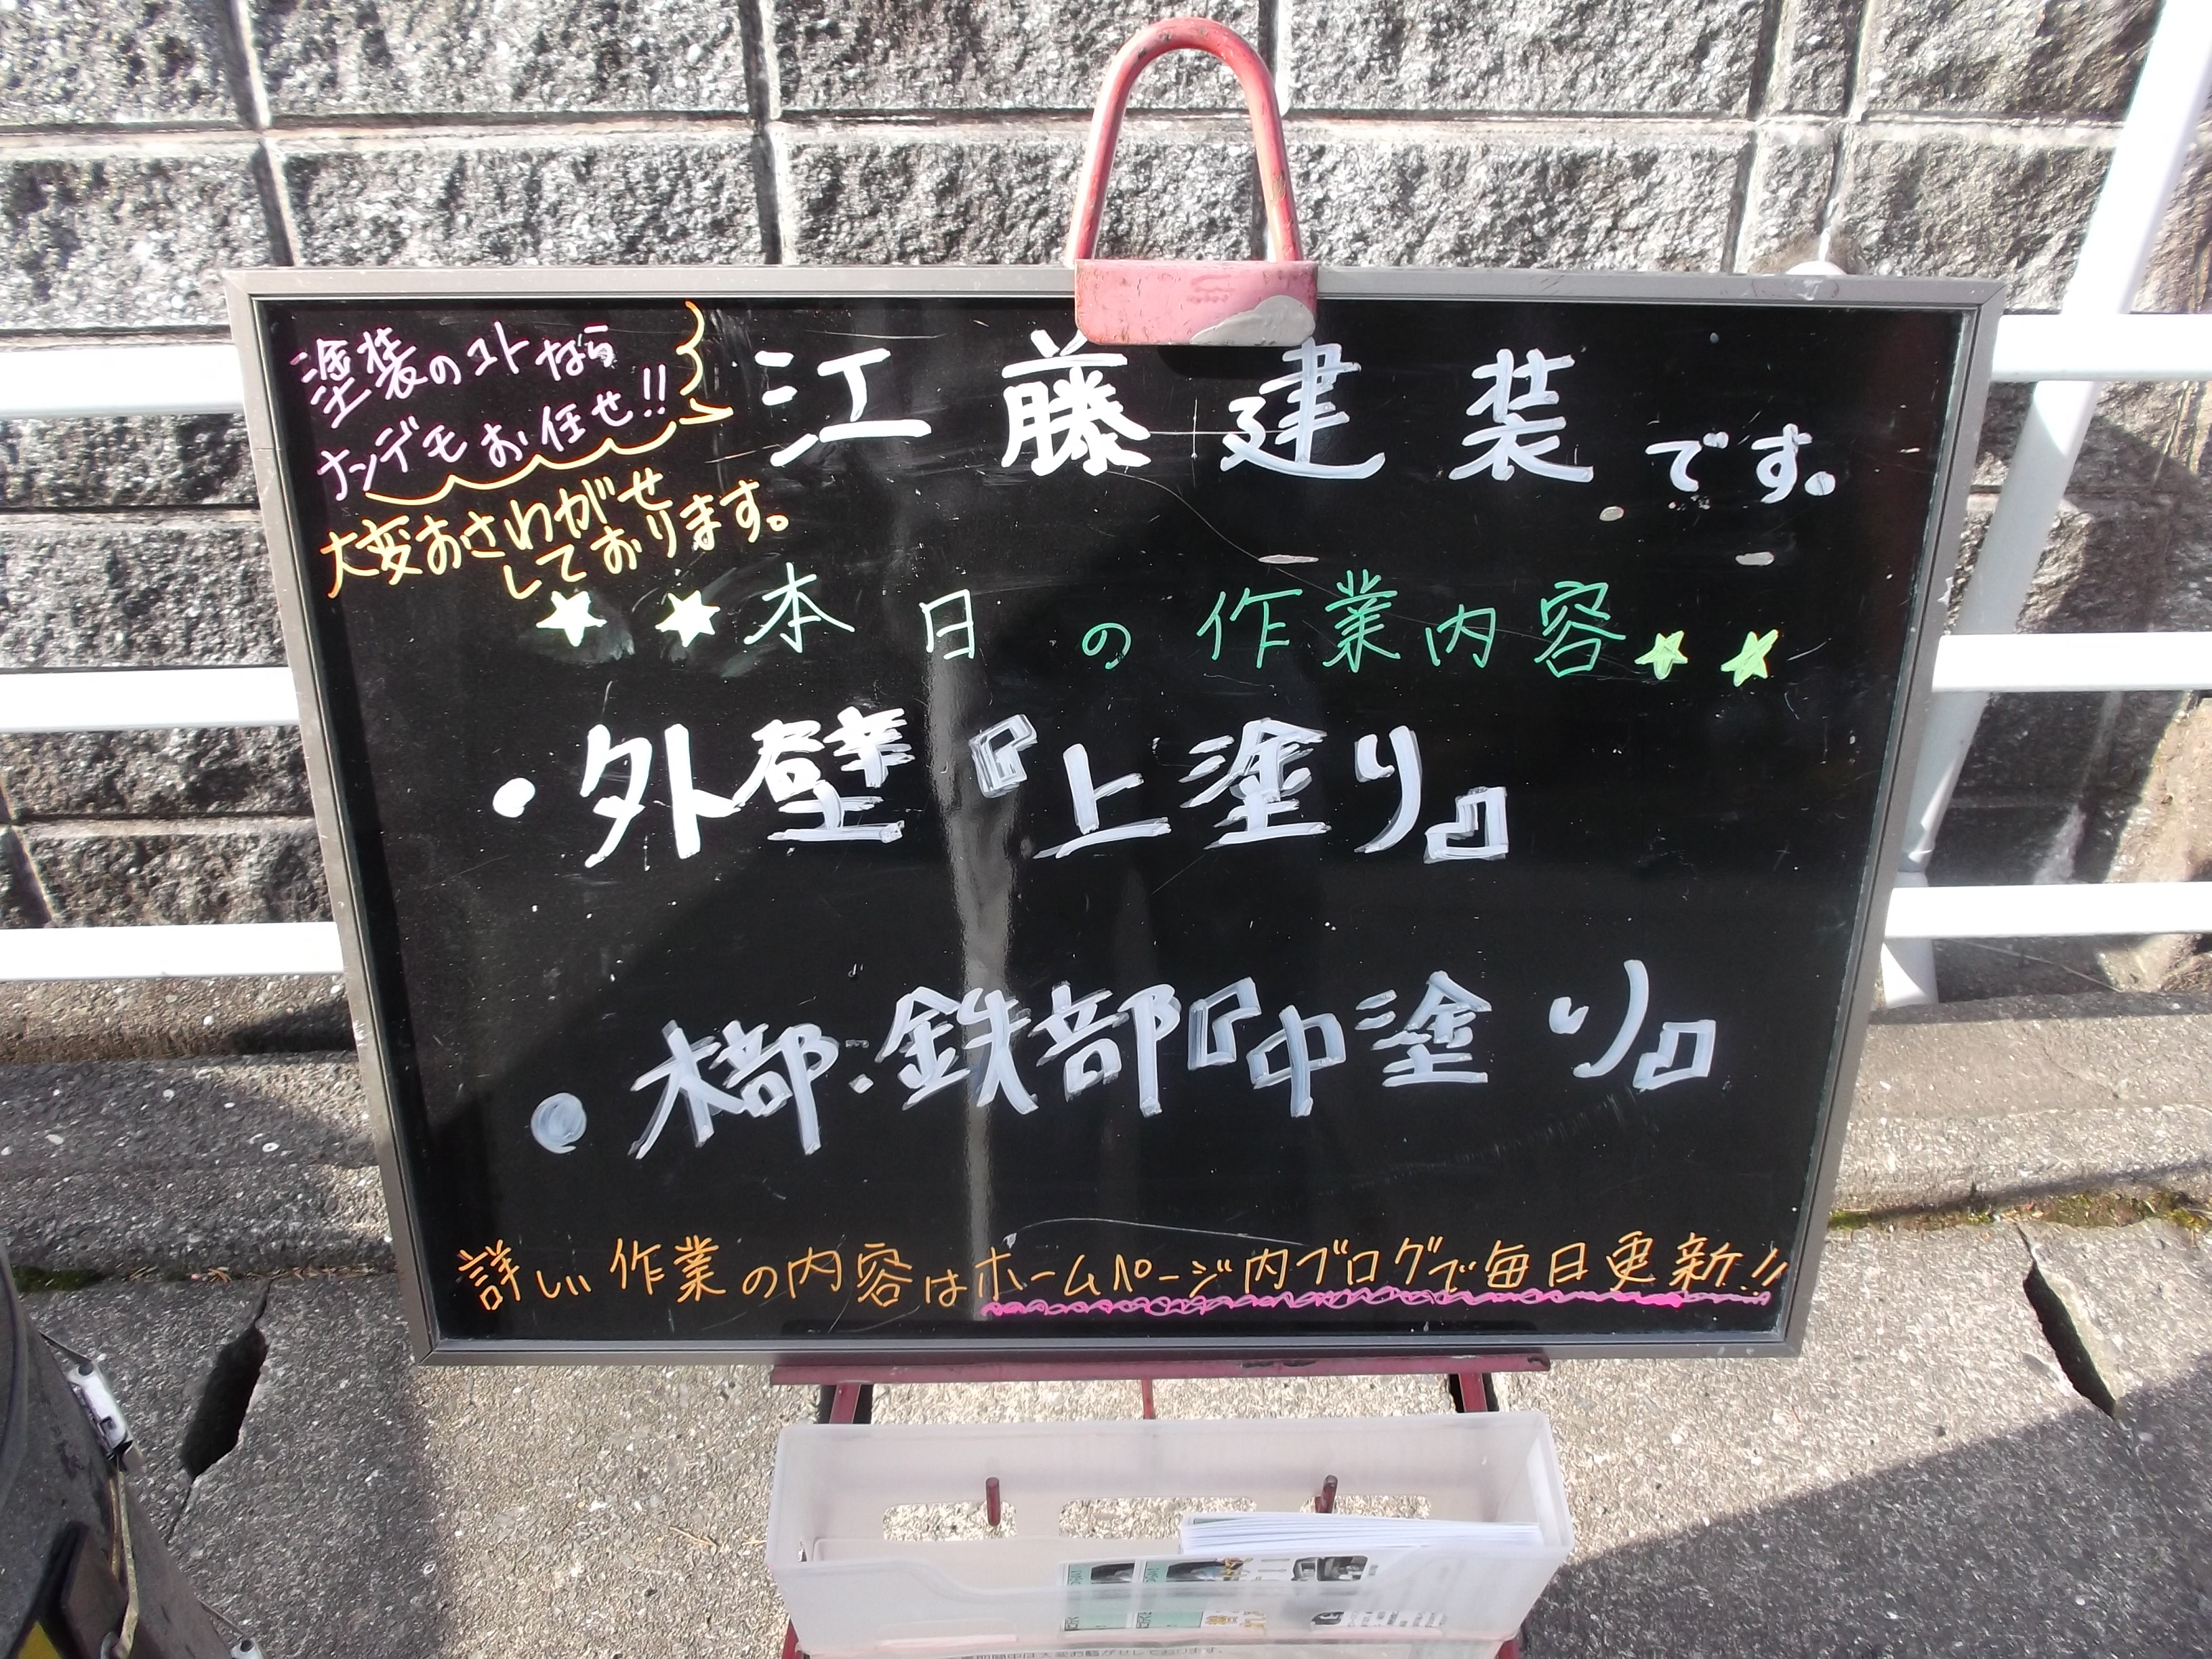 塗装のコトなら
ナンデモお任せ!!
江藤建装です。
大変おさわがせ
しております。
★★本日の作業内容★★
・外壁『上塗り』
・木部:鉄部『中塗り』
詳しい作業の内容はホームページ内ブログで毎日更新!!